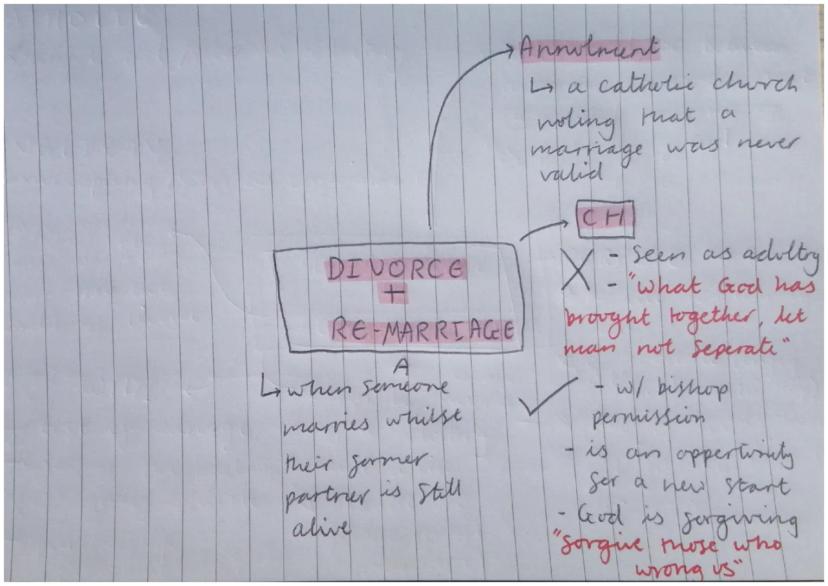 Annulment
↳ a catholic church
ruling that a
marriage was never
valid
CH
DIVORCE
+
RE-MARRIAGE
↳ when someone
marries whilst
their former
partner is still
alive
X - seen as adultry
- "what God has
brought together, let
man not seperate"
✓ - w/ bishop
permission
- is an oppertunity
for a new start
- God is forgiving
"forgive those who
wrong us"